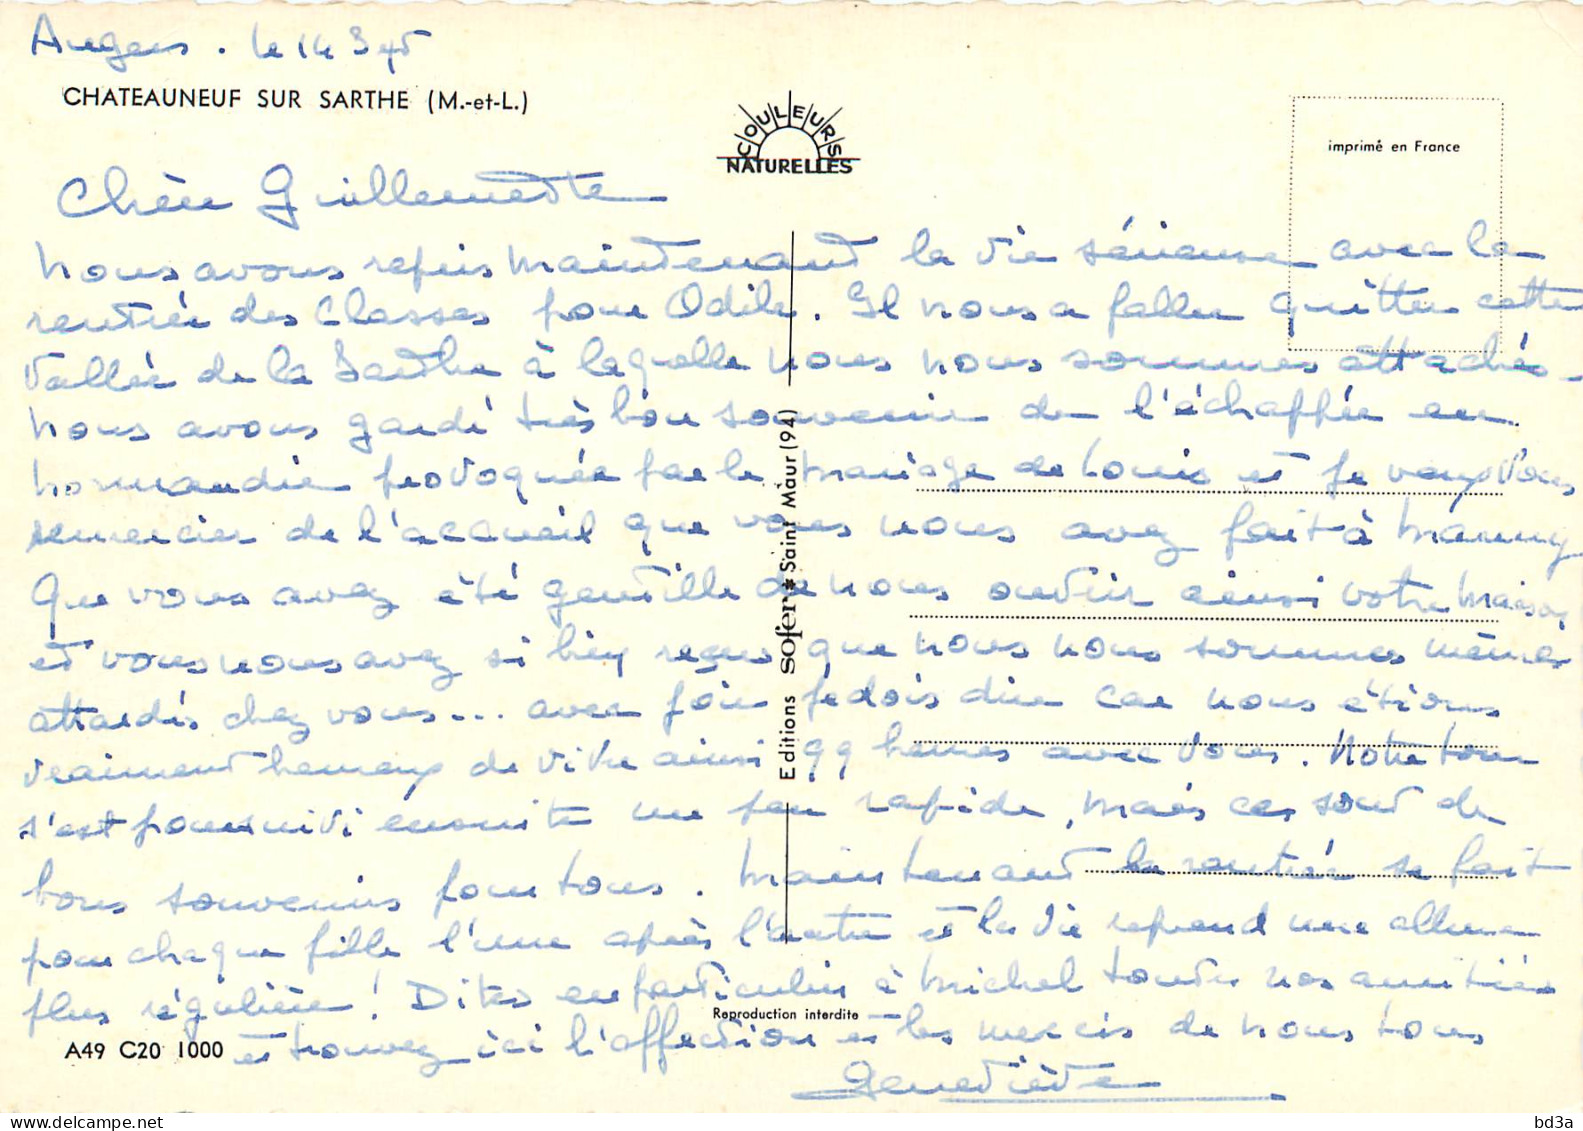 Angers . le 14
CHATEAUNEUF SUR SARTHE (M.-et-L.)
COULEURS
NATURELLES
imprimé en France
Chère Guillemette
Nous avons repris maintenant la vie sérieuse avec la
rentrée des classes pour Odile. Il nous a fallu quitter cette
vallée de la Sarthe à laquelle nous nous sommes attachés.
Nous avons gardé très bon souvenir de l'échappée en
Normandie provoquée par le mariage de Louis et je veux vous
remercier de l'accueil que vous nous avez fait à
Que vous avez été gentille de nous ouvrir ainsi votre maison
et vous nous avez si bien reçus que nous nous sommes mêmes
attardés chez vous... avec joie je dois dire car nous étions
vraiment heureux de vivre ainsi qq heures avec vous. Notre tour
s'est poursuivi ensuite un peu rapide, mais ces sont de
bons souvenirs pour tous. Maintenant la rentrée se fait
pour chaque fille l'une après l'autre et la vie reprend une allure
plus régulière ! Dites en particulier à Michel toutes nos amitiés
et trouvez ici l'affection et les mercis de nous tous
Geneviève
Editions sofer * Saint Maur (94)
Reproduction interdite
A49 C20 1000
bd3a